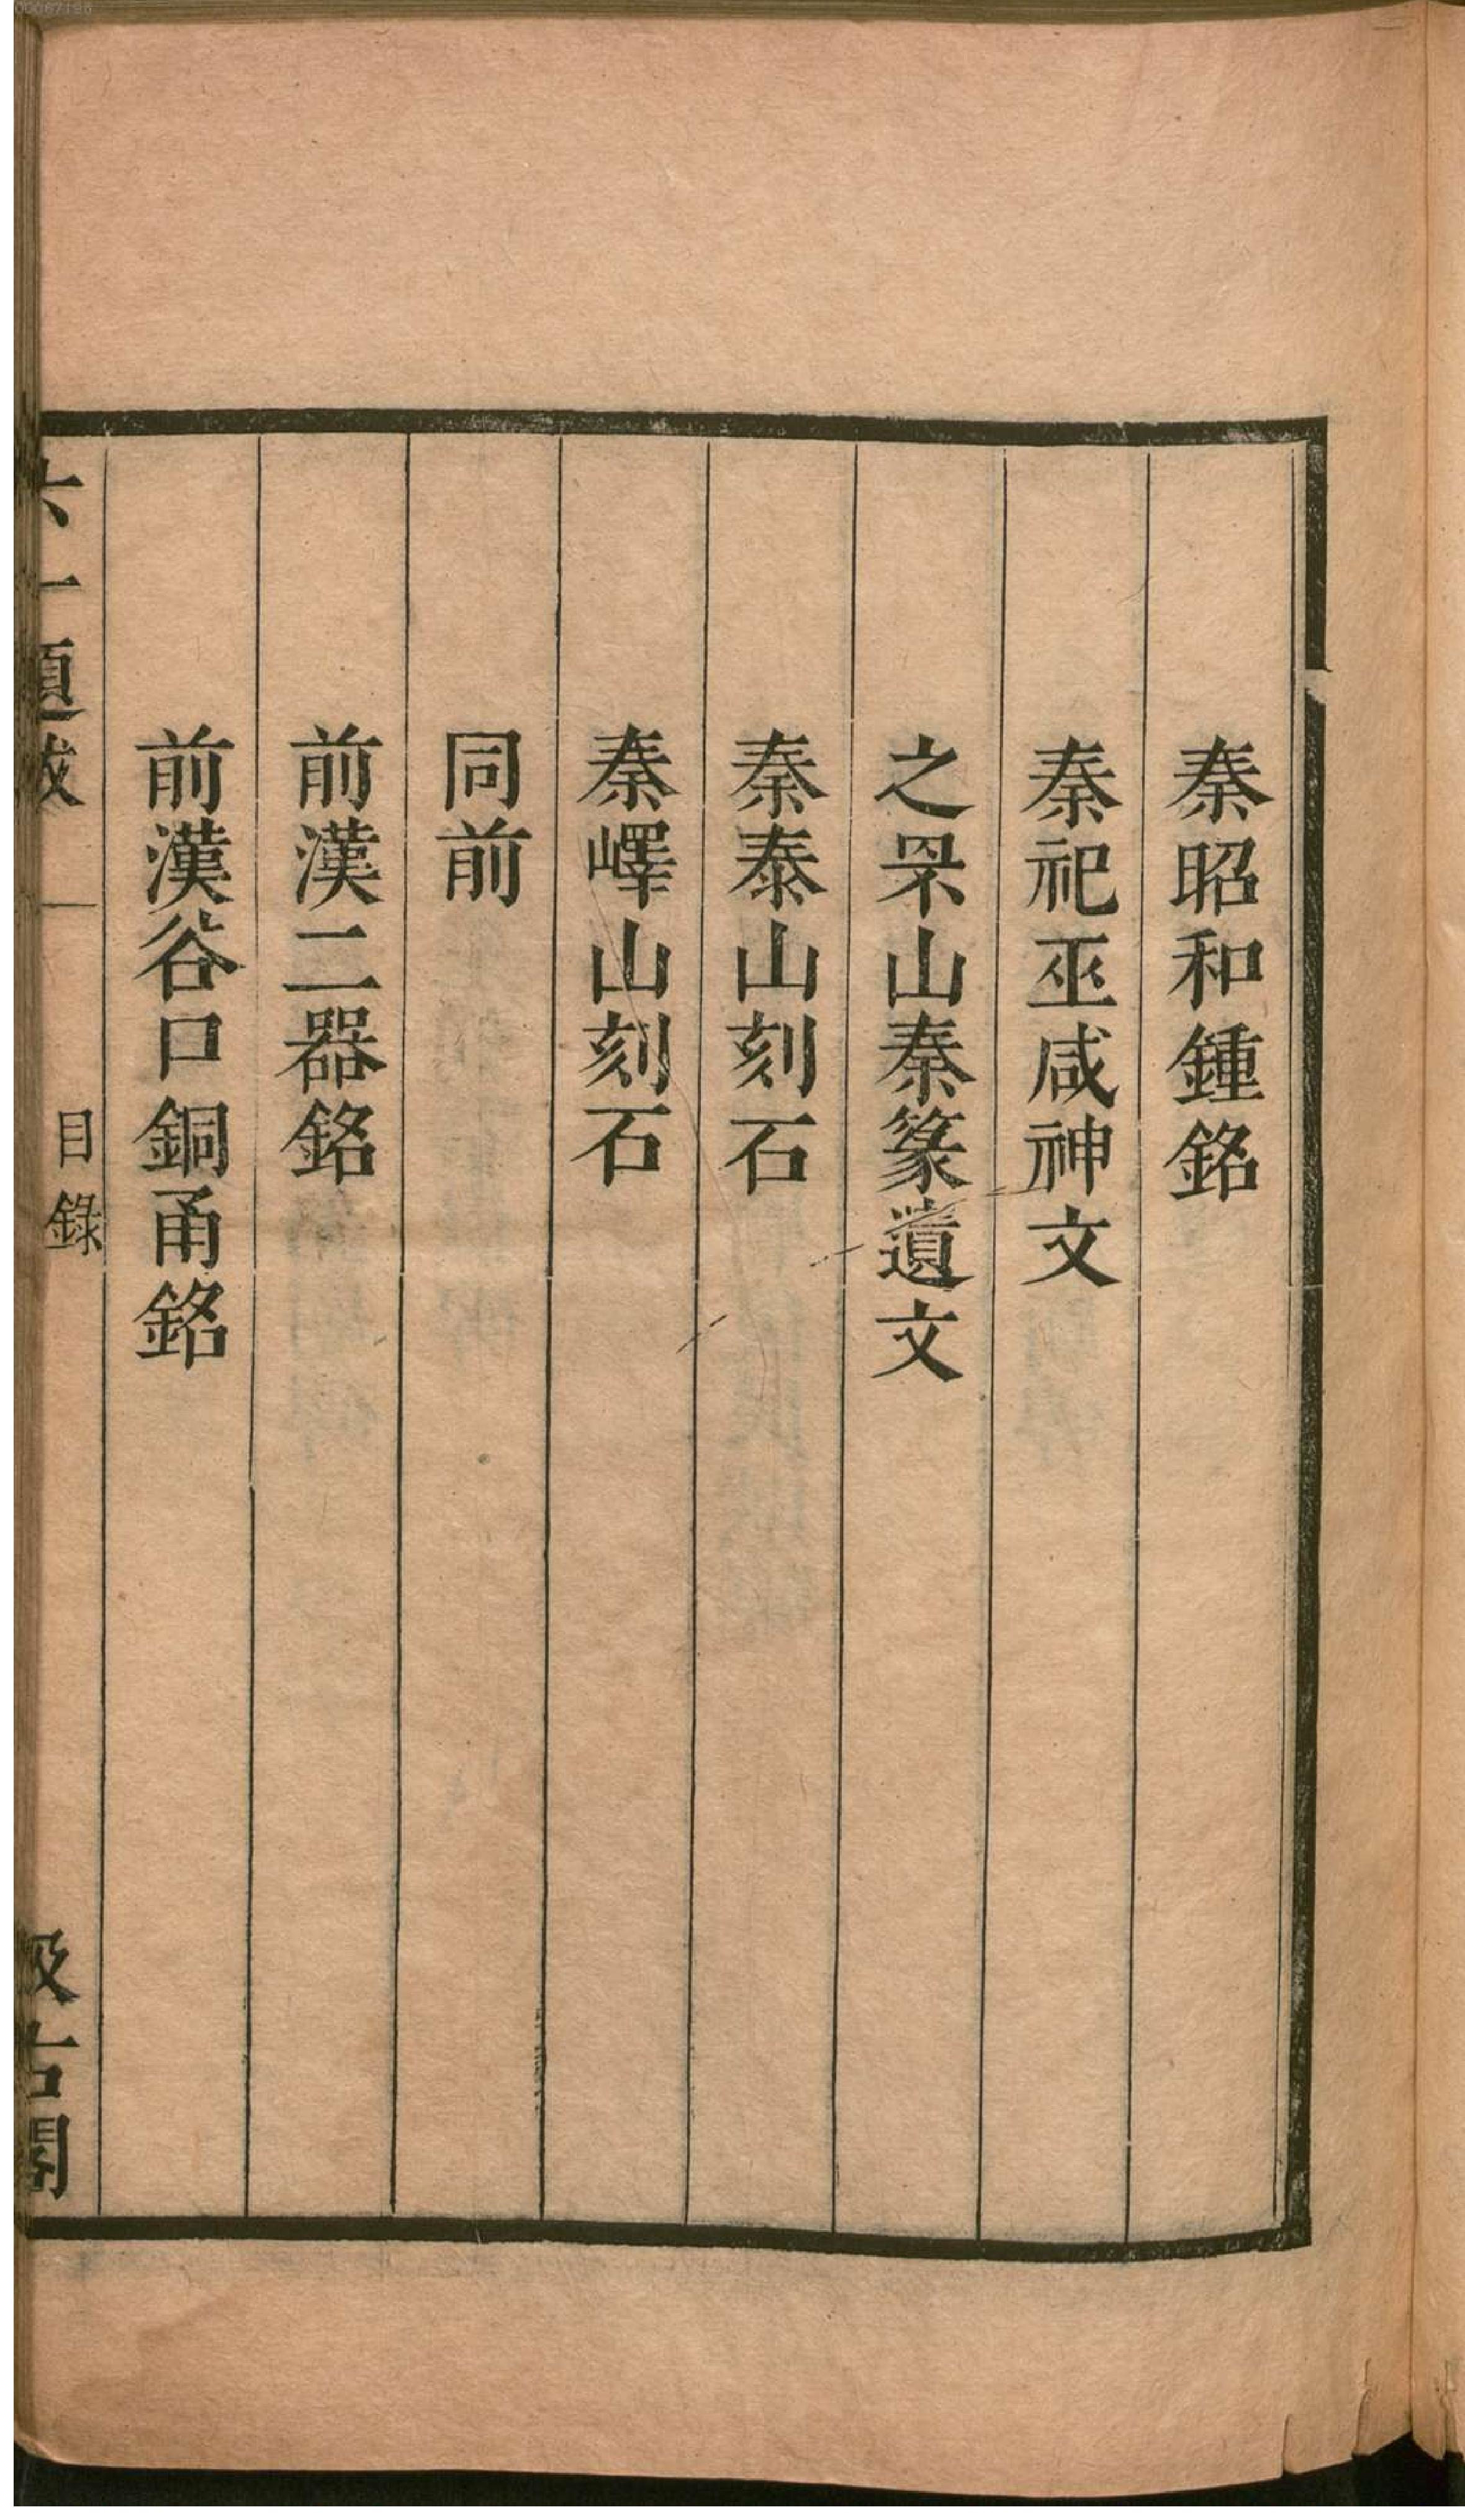 秦昭和鍾銘
秦祀巫咸神文
之罘山秦篆遺文
秦泰山刻石
秦嶧山刻石
同前
前漢二器銘
前漢谷口銅甬銘
六一題跋
目錄
汲古閣
00067196